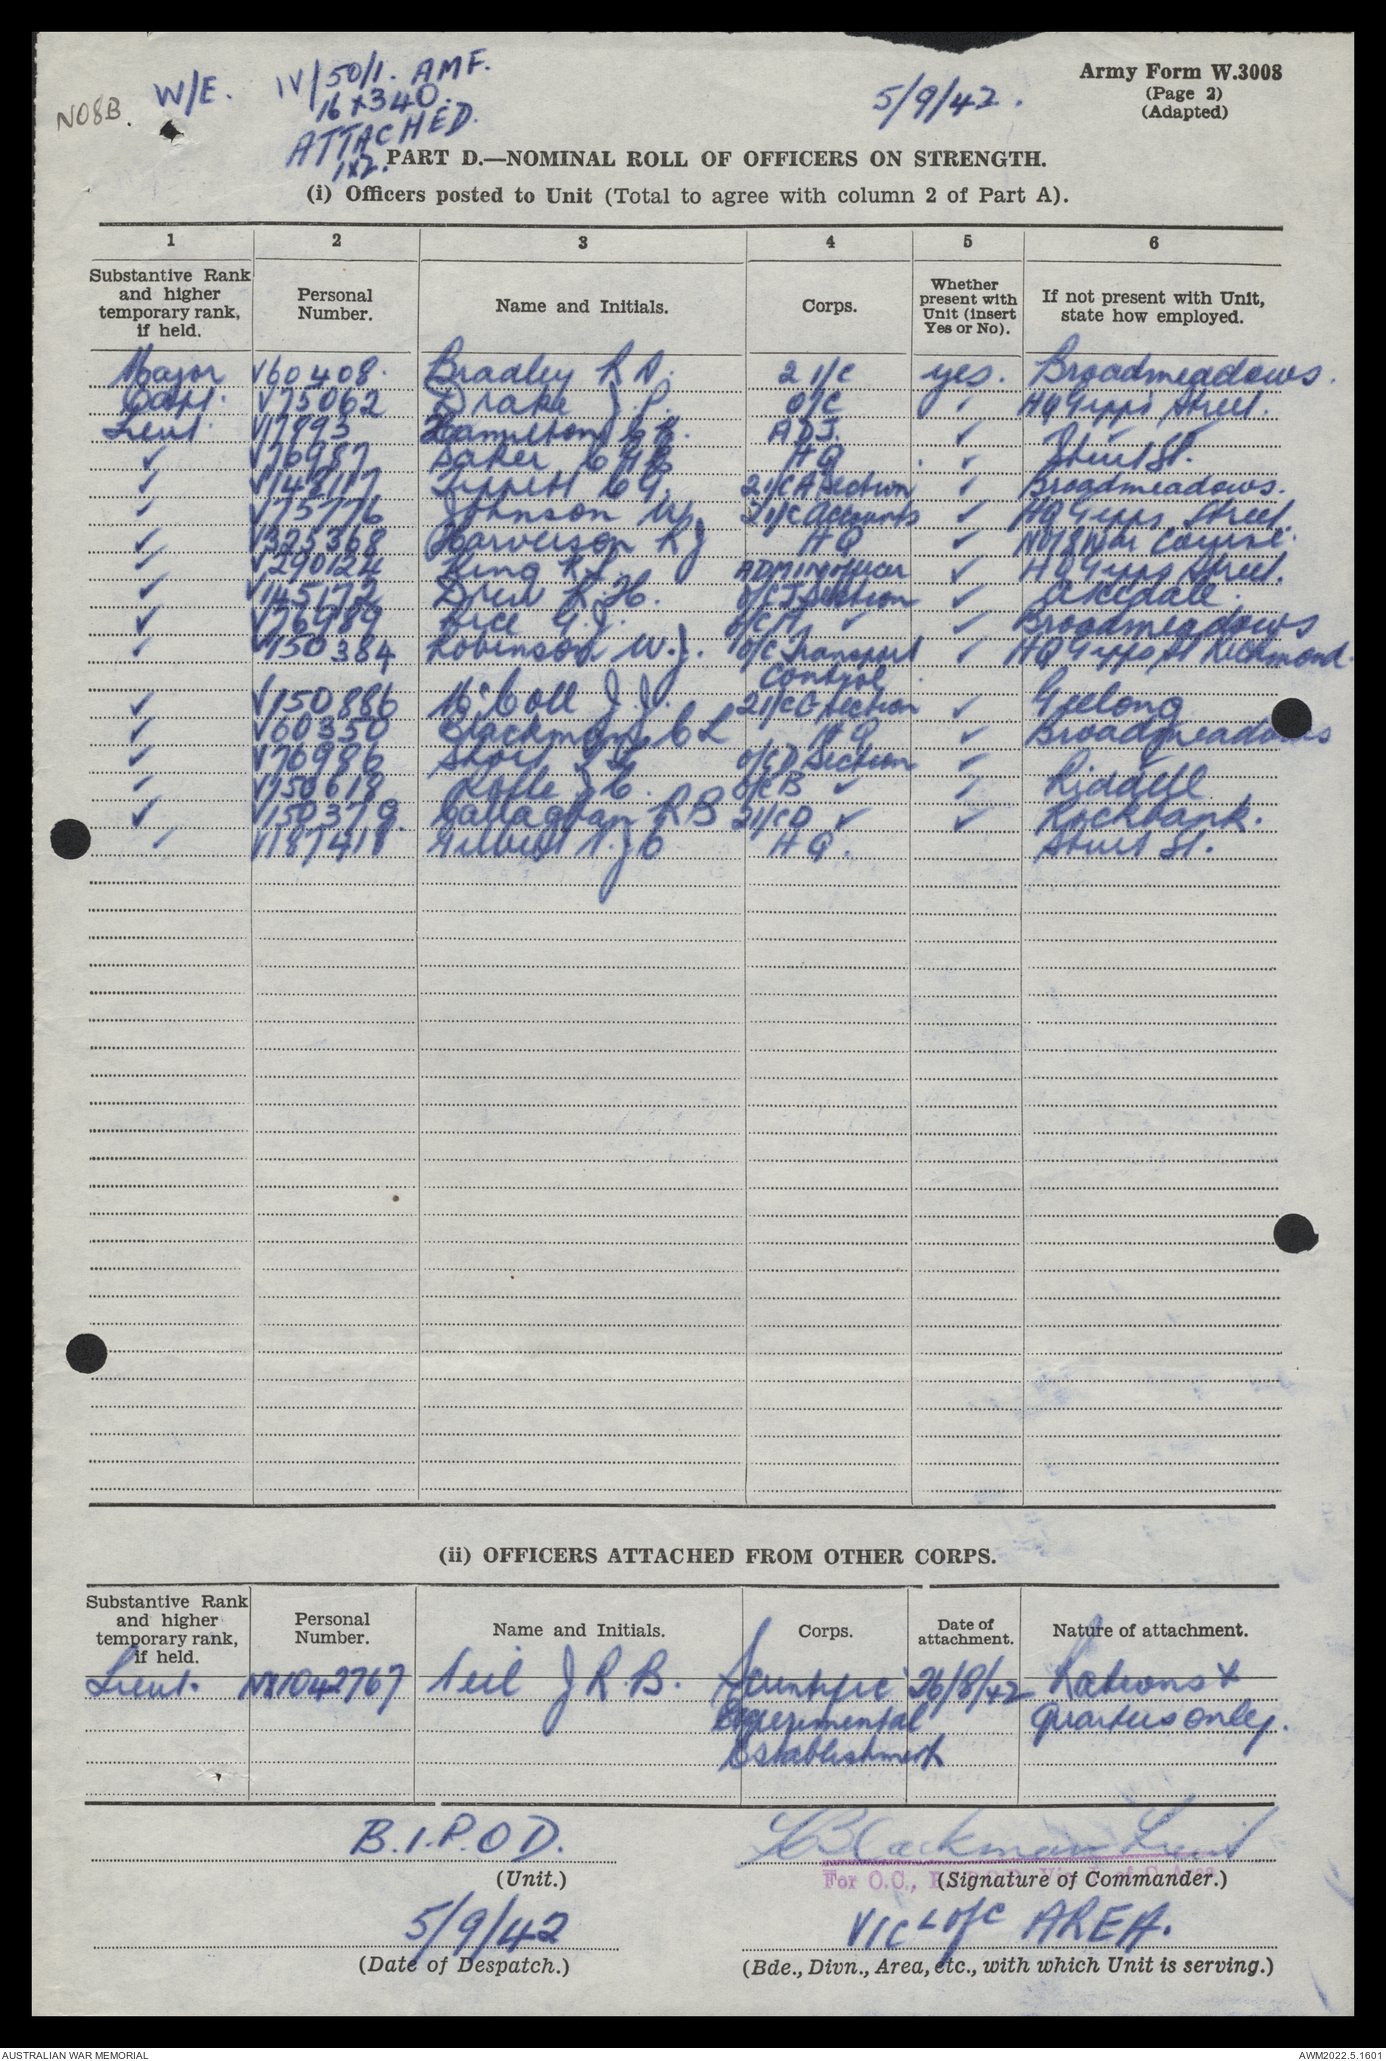 NO8B. W/E. IV/50/1. AMF. 5/9/42. Army Form W.3008
16 x 340. (Page 2)
ATTACHED. (Adapted)
1x2.
PART D.—NOMINAL ROLL OF OFFICERS ON STRENGTH.
(i) Officers posted to Unit (Total to agree with column 2 of Part A).
1 2 3 4 5 6
Substantive Rank and higher temporary rank, if held. Personal Number. Name and Initials. Corps. Whether present with Unit (insert Yes or No). If not present with Unit, state how employed.
Major V60408. Bradley R A. 2 I/C yes. Broadmeadows.
Capt. V75062 Drake J.P. O/C ✓ HQ Gipps Street.
Lieut. V17893 Hamilton ADJ. ✓ Sturt St.
✓ V76987 Baker HQ ✓ Sturt St.
✓ Tippett C G. 2 I/C A Section ✓ Broadmeadows.
✓ V75776 Johnson 2 I/C Accounts ✓ HQ Gipps Street.
✓ V325368 Harverson R J HQ ✓ NO 18 War Course.
✓ V290124 King ADMIN Officer ✓ HQ Gipps Street.
✓ V145172 R.H. O/C J Section ✓
✓ V76989 Rice G.J. O/C ✓ ✓ Broadmeadows
✓ V150384 Robinson W.J. O/C Transport Control ✓ HQ Gipps St Richmond.
✓ V150886 McColl J.J. 2 I/C C Section ✓ Geelong
✓ V60350 Blackman C L HQ ✓ Broadmeadows
✓ V76986 Short O/C D Section ✓ ✓
✓ V150618 O/C B ✓ ✓ Riddell
✓ V150379. Callaghan R B 2 I/C D ✓ ✓ Rockbank.
✓ V187418 Gilbert HQ. Sturt St.
(ii) OFFICERS ATTACHED FROM OTHER CORPS.
Substantive Rank and higher temporary rank, if held. Personal Number. Name and Initials. Corps. Date of attachment. Nature of attachment.
Lieut. NX1042767 Neil J R.B. Scientific 26/8/42 Rations &
Experimental Quarters only.
Establishment
B.I.P.O D. C Blackman Lieut
For O.C.,
(Unit.) (Signature of Commander.)
5/9/42 VIC L of C AREA.
(Date of Despatch.) (Bde., Divn., Area, etc., with which Unit is serving.)
AUSTRALIAN WAR MEMORIAL AWM2022.5.1601